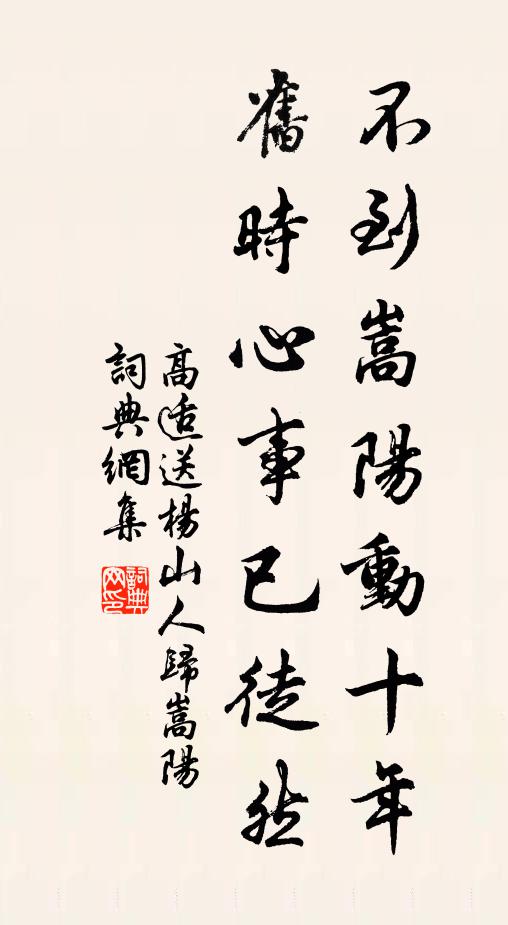 不到嵩陽動十年
舊時心事已徒然
高适送楊山人歸嵩陽
詞典網集
詞典網印